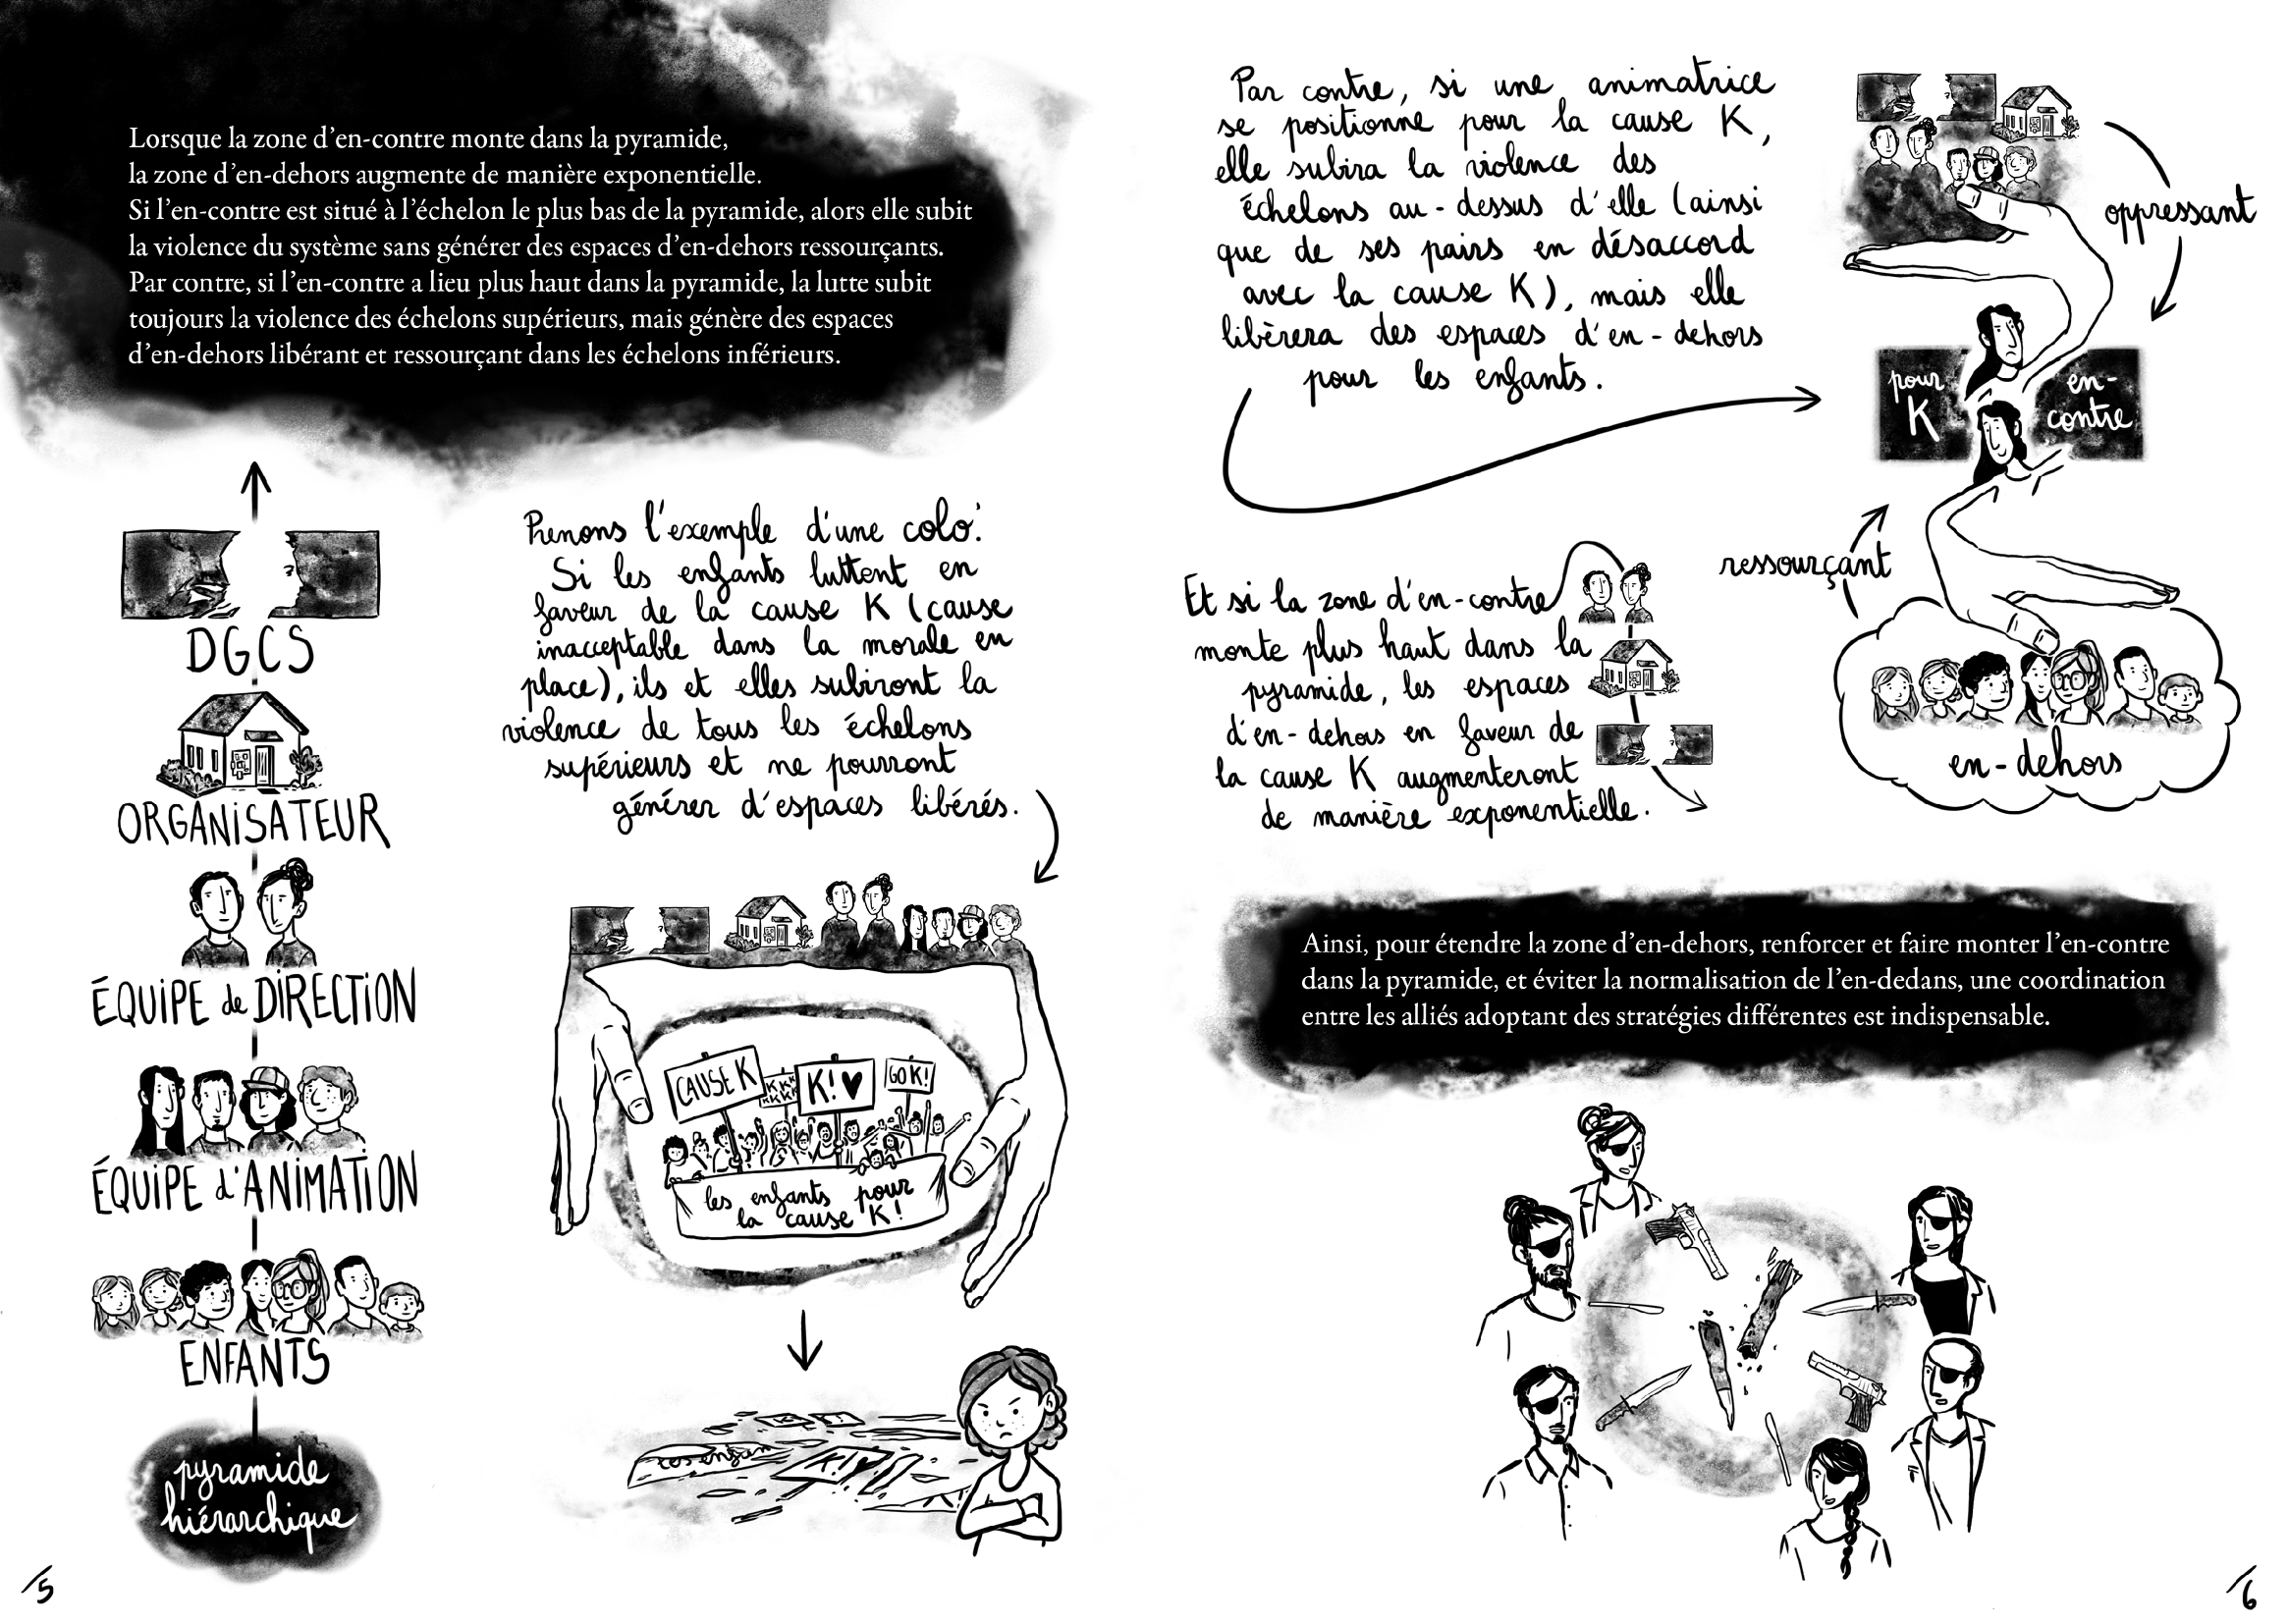 Lorsque la zone d'en-contre monte dans la pyramide,
la zone d'en-dehors augmente de manière exponentielle.
Si l'en-contre est situé à l'échelon le plus bas de la pyramide, alors elle subit
la violence du système sans générer des espaces d'en-dehors ressourçants.
Par contre, si l'en-contre a lieu plus haut dans la pyramide, la lutte subit
toujours la violence des échelons supérieurs, mais génère des espaces
d'en-dehors libérant et ressourçant dans les échelons inférieurs.
DGCS
ORGANiSATEUR
ÉQUiPE de DiRECTiON
ÉQUiPE d'ANiMATiON
ENFANTS
pyramide
hiérarchique
Prenons l'exemple d'une colo :
Si les enfants luttent en
faveur de la cause K (cause
inacceptable dans la morale en
place), ils et elles subiront la
violence de tous les échelons
supérieurs et ne pourront
générer d'espaces libérés.
CAUSE K
K!♥
GO K!
les enfants pour
la cause K!
Les enfan
K!
5
Par contre, si une animatrice
se positionne pour la cause K,
elle subira la violence des
échelons au-dessus d'elle (ainsi
que de ses pairs en désaccord
avec la cause K), mais elle
libèrera des espaces d'en-dehors
pour les enfants.
oppressant
pour
K
en-
contre
ressourçant
en-dehors
Et si la zone d'en-contre
monte plus haut dans la
pyramide, les espaces
d'en-dehors en faveur de
la cause K augmenteront
de manière exponentielle.
Ainsi, pour étendre la zone d'en-dehors, renforcer et faire monter l'en-contre
dans la pyramide, et éviter la normalisation de l'en-dedans, une coordination
entre les alliés adoptant des stratégies différentes est indispensable.
6